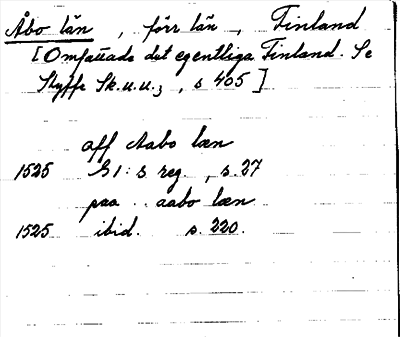 Åbo län, förr län, Finland
[Omfattade det egentliga Finland. Se
Styffe Sk.u.u.3, s 405]
aff Aabo læn
1525 G1:s reg., s.27
paa .. aabo læn
1525 ibid. s.220.